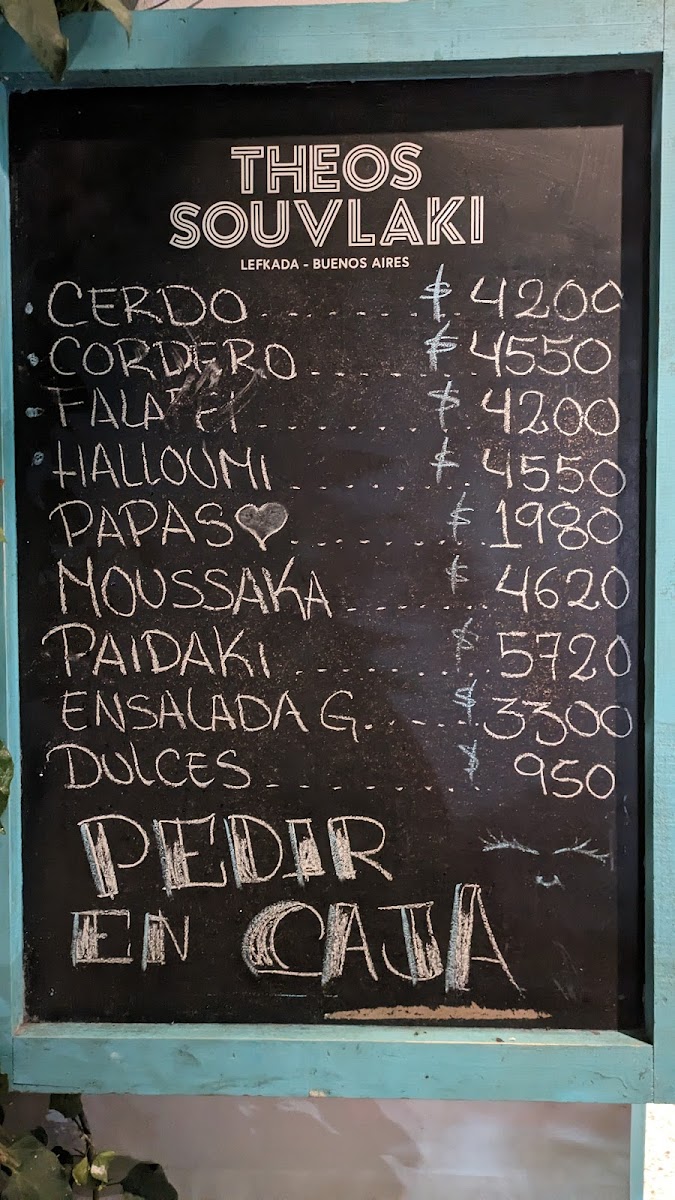 THEOS
SOUVLAKI
LEFKADA - BUENOS AIRES
• CERDO ........ $ 4200
• CORDERO ........ $ 4550
• FALAFEL ........ $ 4200
• HALLOUMI ........ $ 4550
PAPAS ♥ ........ $ 1980
MOUSSAKA ........ $ 4620
PAIDAKI ........ $ 5720
ENSALADA G. ........ $ 3300
DULCES ........ $ 950
PEDIR
EN CAJA